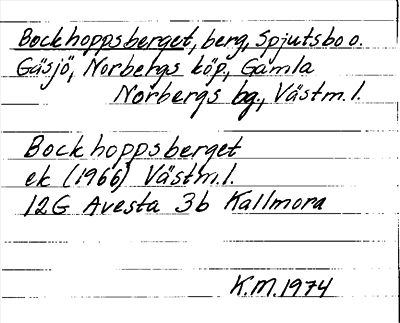 Bockhoppsberget, berg, Spjutsbo o.
Gäsjö, Norbergs köp., Gamla
Norbergs bg., Västm.l.
Bockhoppsberget
ek (1966) Västm.l.
12G Avesta 3b Kallmora
K.M.1974